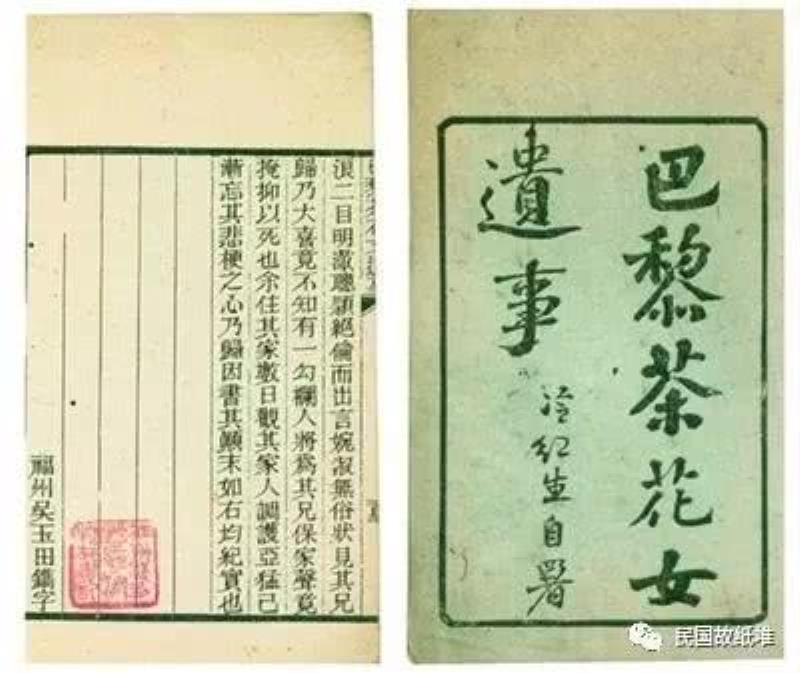 巴黎茶花女
遺事
冷紅生自署
浪二目明瀲聰穎絕倫而出言婉淑無俗狀見其兄
歸乃大喜竟不知有一勾欄人將爲其兄保家聲竟
掩抑以死也余住其家數日觀其家人調護亞猛已
漸忘其悲梗之心乃歸因書其顛末如右均紀實也
福州吴玉田鐫字
民国故纸堆